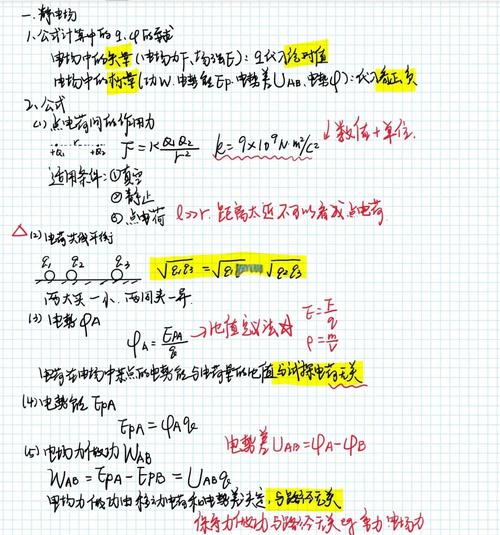 一.静电场
1.公式计算中的q、φ的
电场中的矢量(电场力F、场强E):q代入绝对值
电场中的标量(功W、电势能Ep、电势差UAB、电势φ):代入有正负
2.公式
(1)点电荷间的作用力
+Q₁ r +Q₂ F=KQ₁Q₂/r² k=9×10⁹N·m²/C² 数值+单位.
适用条件:①真空
②静止
③点电荷 l>>r 距离太近不可以看成点电荷
△(2)电荷共线平衡
q₁ q₂ q₃ √q₁q₃ = √q₁ + √q₂q₃
两大夹一小,两同夹一异.
(3)电势φA
φA=EPA/q →比值定义法 E=F/q
ρ=m/V
电荷在电场中某点的电势能与电荷量的比值与试探电荷无关
(4)电势能EPA
EPA=φAq
(5)电场力做功WAB 电势差UAB=φA-φB
WAB=EPA-EPB=UABq
电场力做功由移动电荷和电势差决定,与路径无关
保守力做功与路径无关 eg 重力 电场力